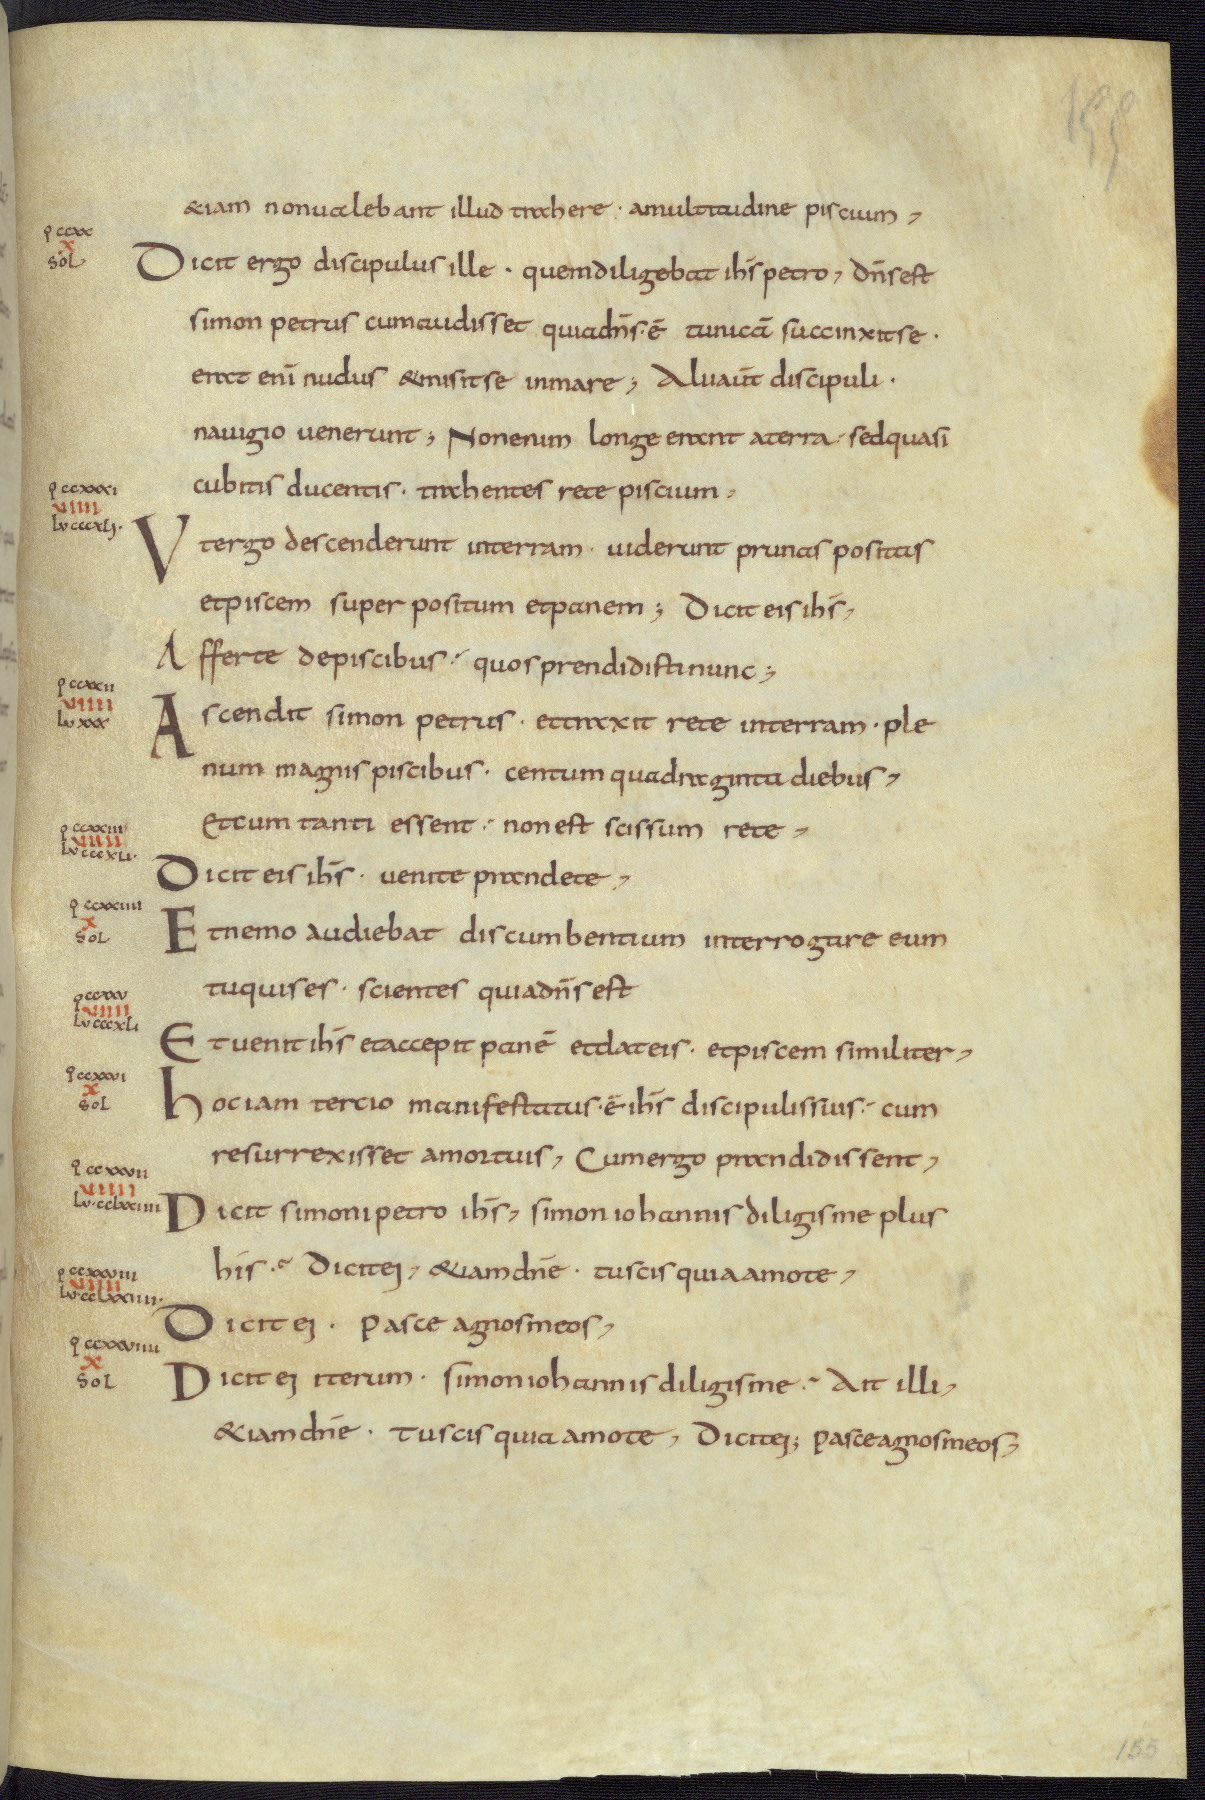 155
&iam nonualebant illud trahere · amultitudine piscium,
ꝑ ccxx
x
sol
Dicit ergo discipulus ille · quemdiligebat ih̄s petro, dn̄s est
simon petrus cumaudisset quiadn̄s·ē tunicā succinxit se ·
erat enī nudus &misit se inmare; Aluaūt discipuli ·
nauigio uenerunt; Nonenim longe erant aterra · sedquasi
cubitis ducentis · trahentes rete piscium,
ꝑ ccxxxi
viiii
lv cccxlj·
Vtergo descenderunt interram · uiderunt prunas positas
etpiscem super positum etpanem; Dicit eis ih̄s,
Afferte depiscibus · quos prendidistinunc;
ꝑ ccxxii
viiii
lv xxx
Ascendit simon petrus · ettraxit rete interram · ple
num magnis piscibus · centum quadraginta diebus,
Etcum tanti essent · nonest scissum rete,
ꝑ ccxxiii
viiii
lv cccxli·
Dicit eis ih̄s · uenite prandete,
ꝑ ccxxiiii
x
sol
Etnemo audiebat discumbentium interrogare eum
tuquises · scientes quiadn̄s est
ꝑ ccxxv
viiii
lv cccxli
Etuenit ih̄s etaccepit panē etdateis · etpiscem similiter,
ꝑ ccxxvi
x
sol
hociam tercio manifestatus·ē ih̄s discipulis suis · cum
resurrexisset amortuis, Cumergo prandidissent,
ꝑ ccxxvii
viiii
lv·cclxxiiii
Dicit simonipetro ih̄s, simon iohannis diligisme plus
his · Dicitej, &iamdn̄e · tuscis quiaamote,
ꝑ ccxxviii
viiii
lv·cclxxiiii·
Dicit ej · pasce agnosmeos,
ꝑ ccxxviiii
x
sol
Dicit ej iterum · simoniohannis diligisme · Ait illi,
&iamdn̄e · Tuscis quia amote, Dicitej; pasceagnosmeos,
155